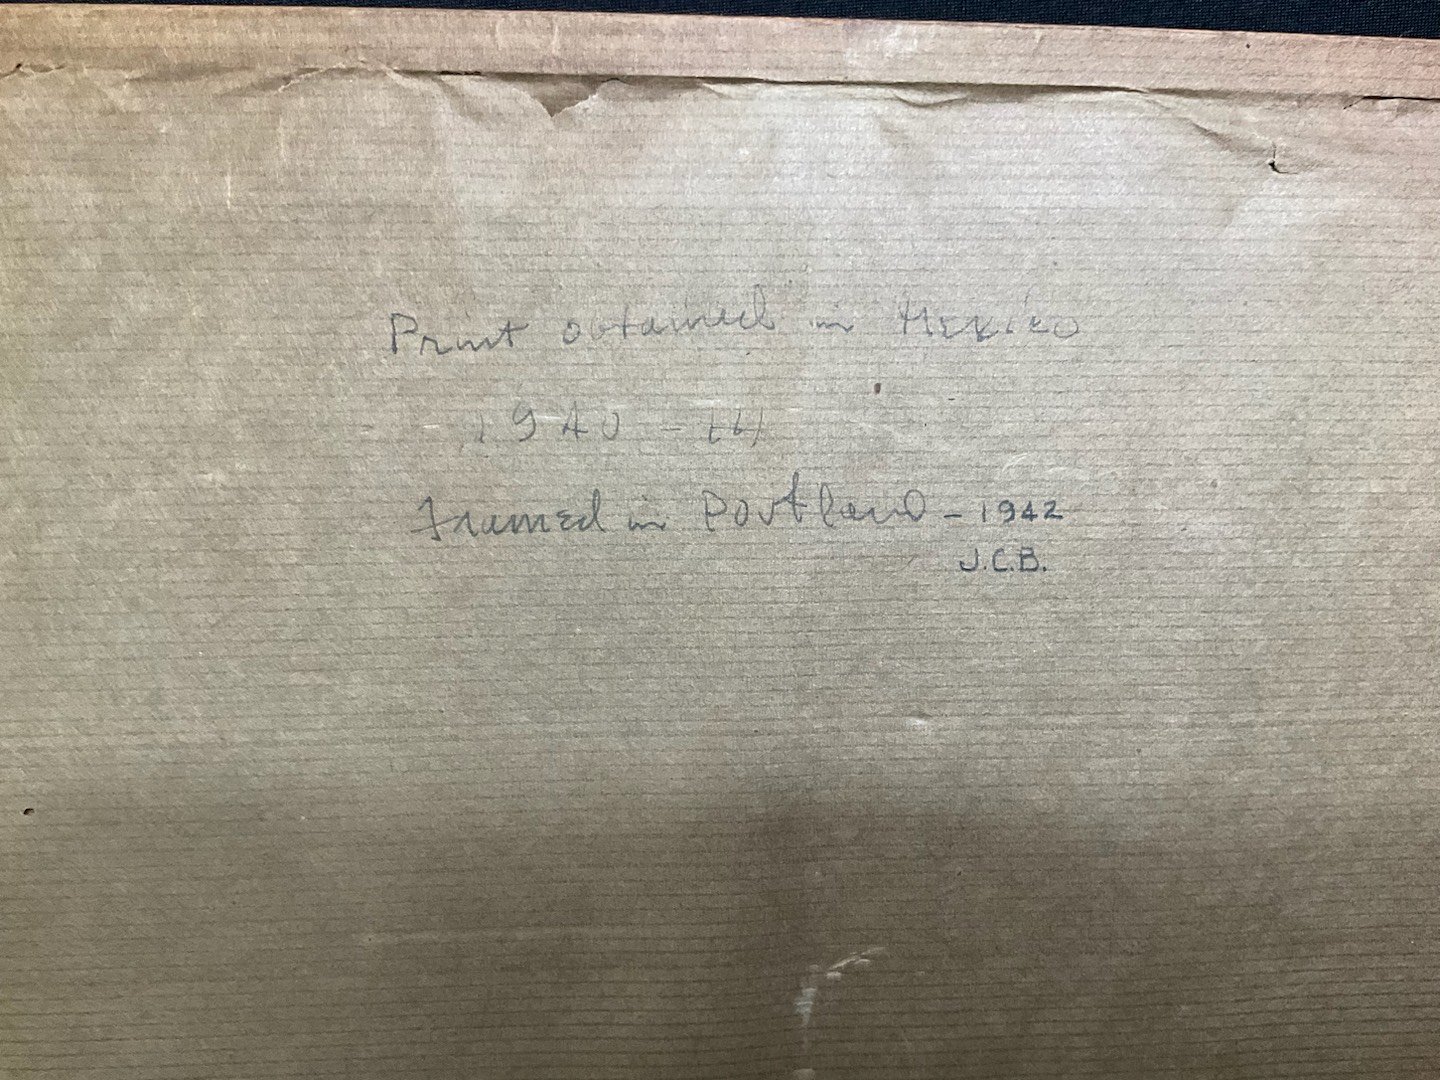 Print obtained in Mexico
1940 -
Framed in Portland - 1942
J.C.B.